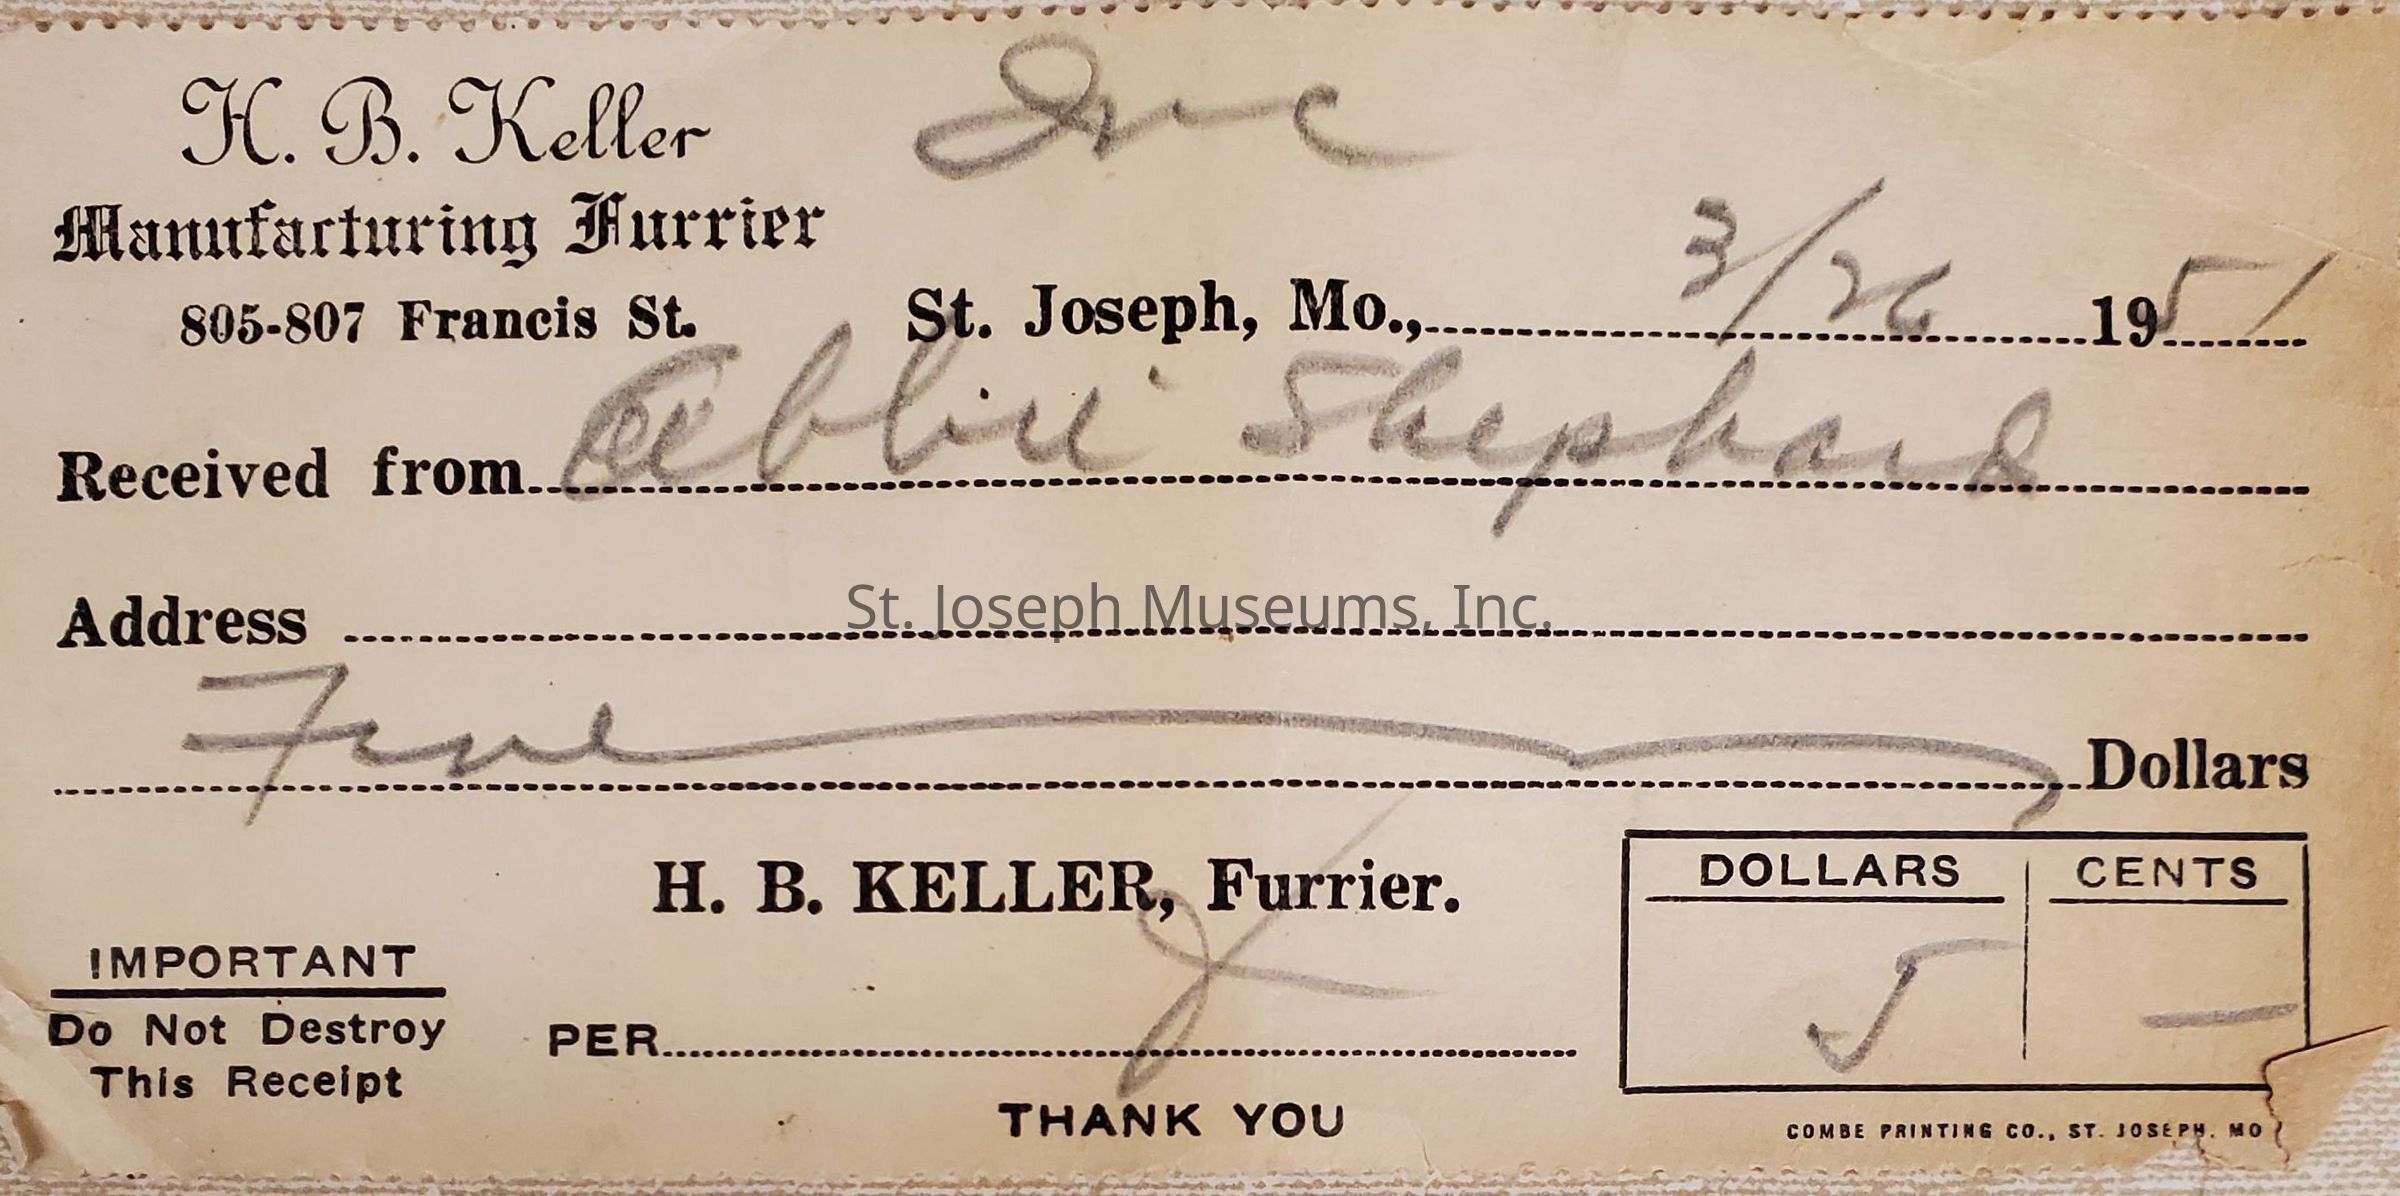 H. B. Keller Inc
Manufacturing Furrier
805-807 Francis St.
St. Joseph, Mo., 3/26 1951
Received from Abbie Shephard
Address
St. Joseph Museums, Inc.
Five Dollars
H. B. KELLER, Furrier.
IMPORTANT
Do Not Destroy
This Receipt
PER
THANK YOU
DOLLARS CENTS
5 —
COMBE PRINTING CO., ST. JOSEPH, MO